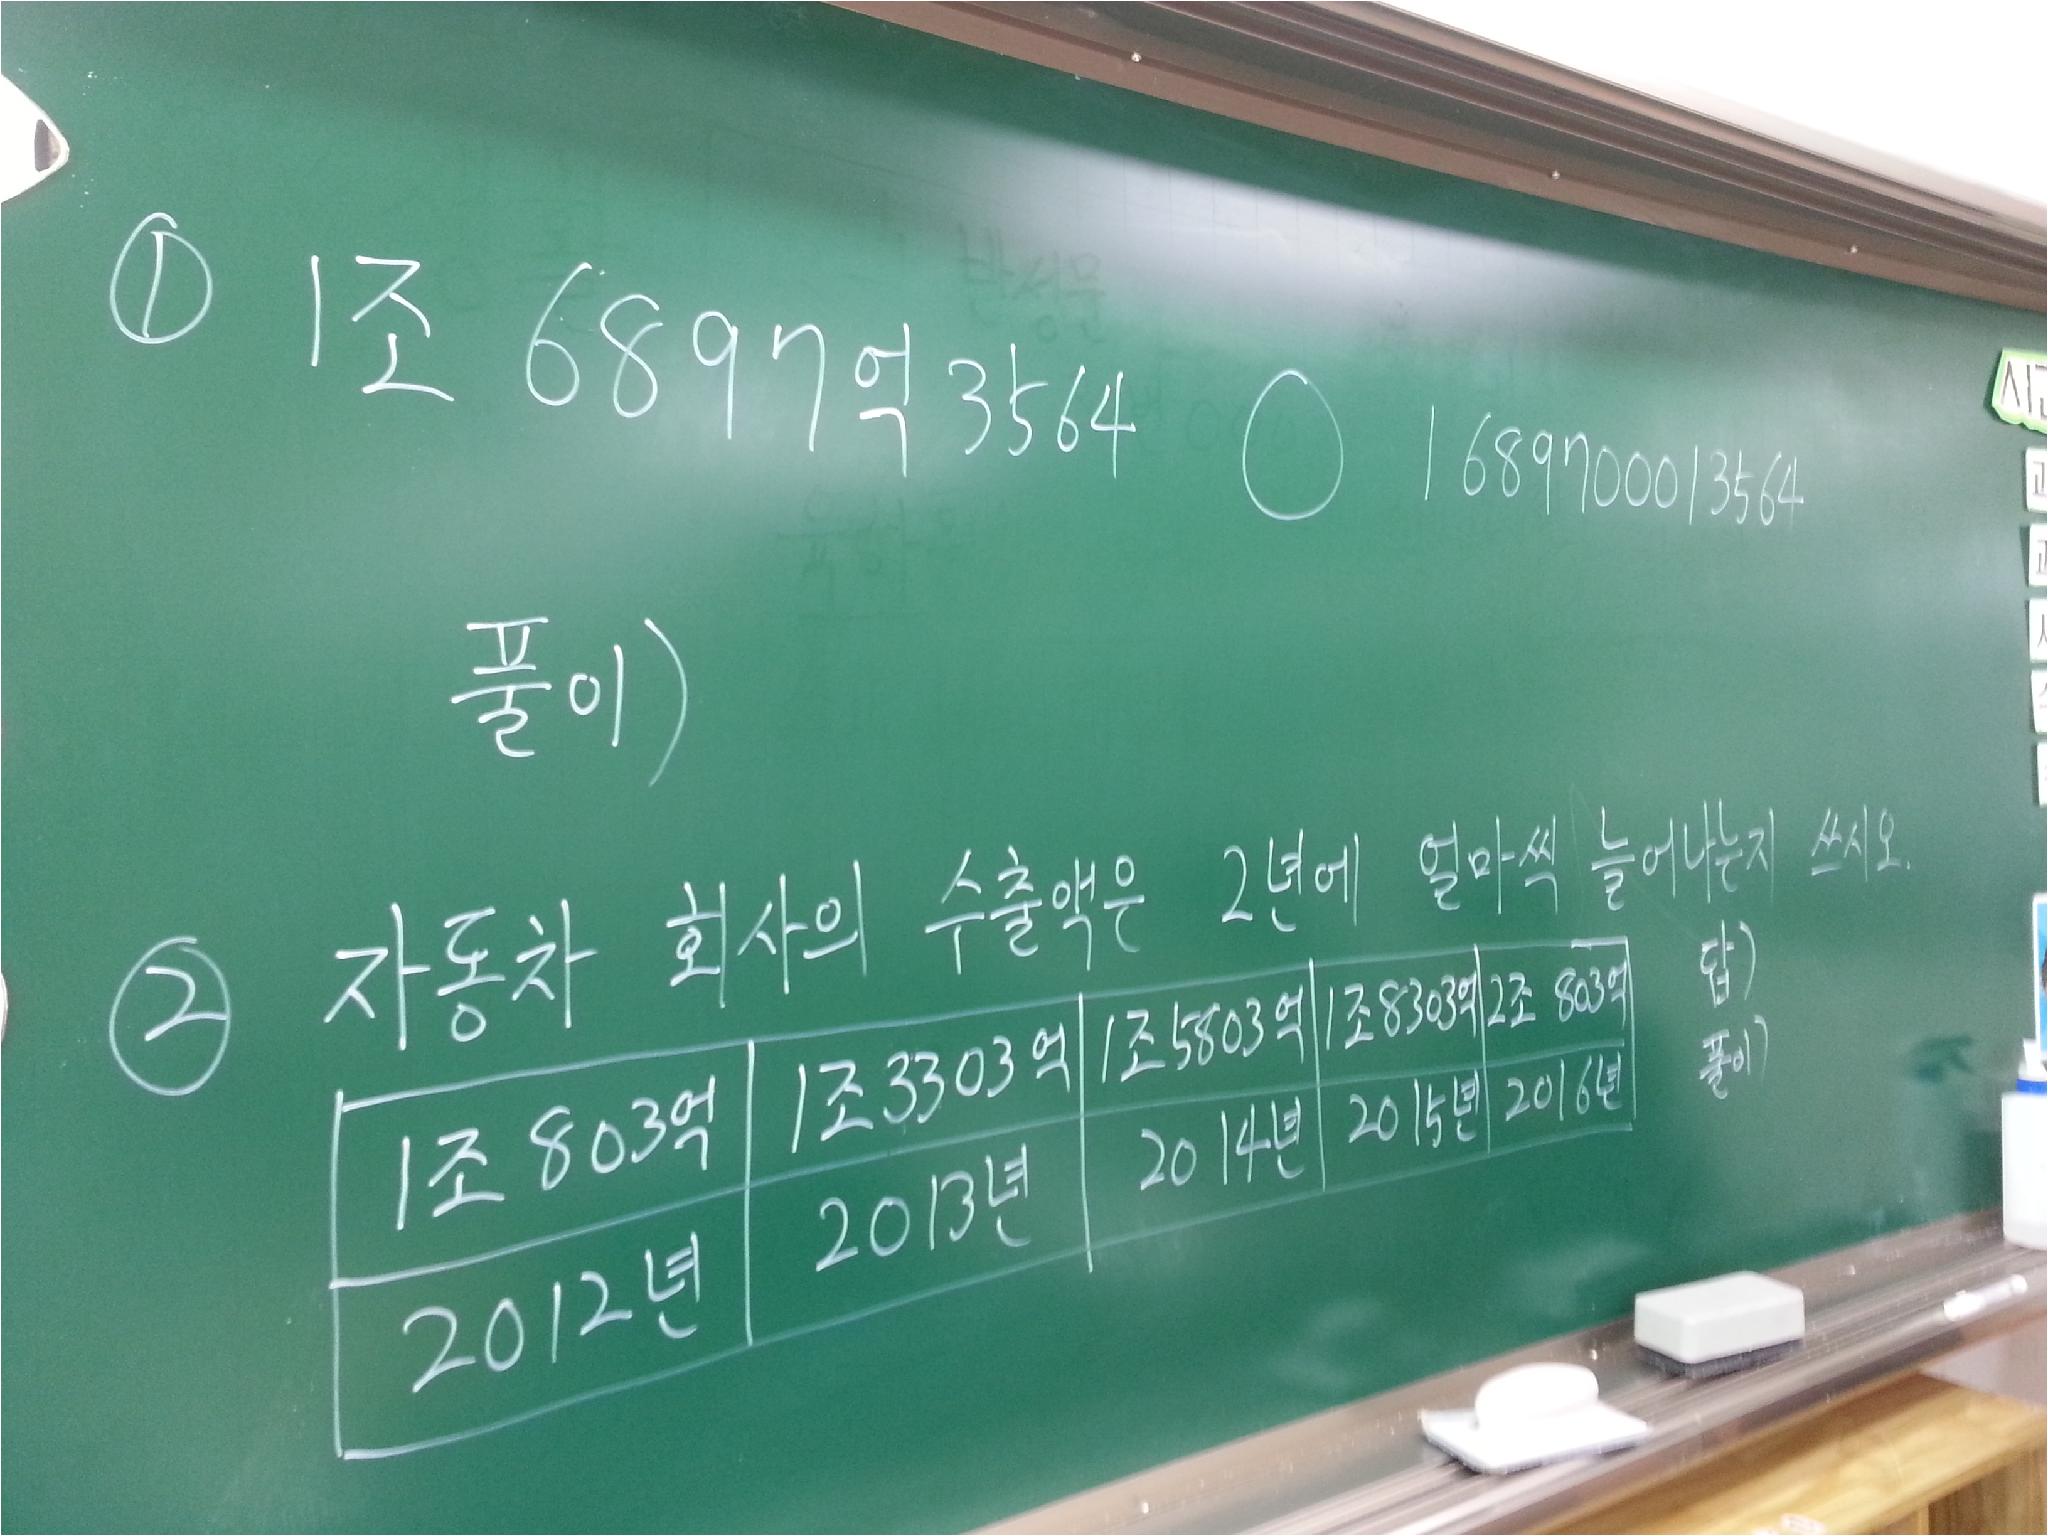 ① 1조 6897억 3564 ○ 1689700013564
풀이)
② 자동차 회사의 수출액은 2년에 얼마씩 늘어나는지 쓰시오.
1조 803억 1조3303억 1조5803억 1조8303억 2조 803억 답)
2012년 2013년 2014년 2015년 2016년 풀이)